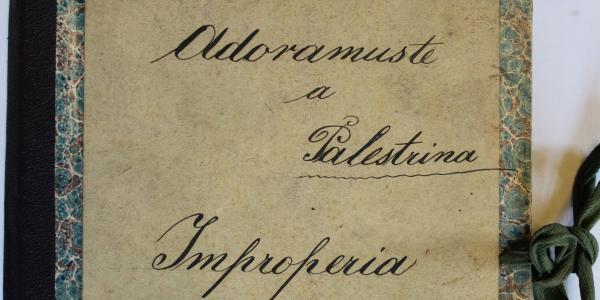 Adoramuste
a
Palestrina
Improperia